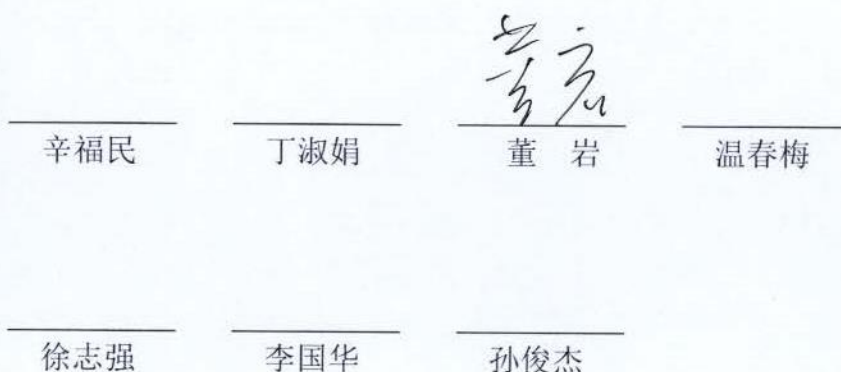 董岩
辛福民 丁淑娟 董 岩 温春梅
徐志强 李国华 孙俊杰